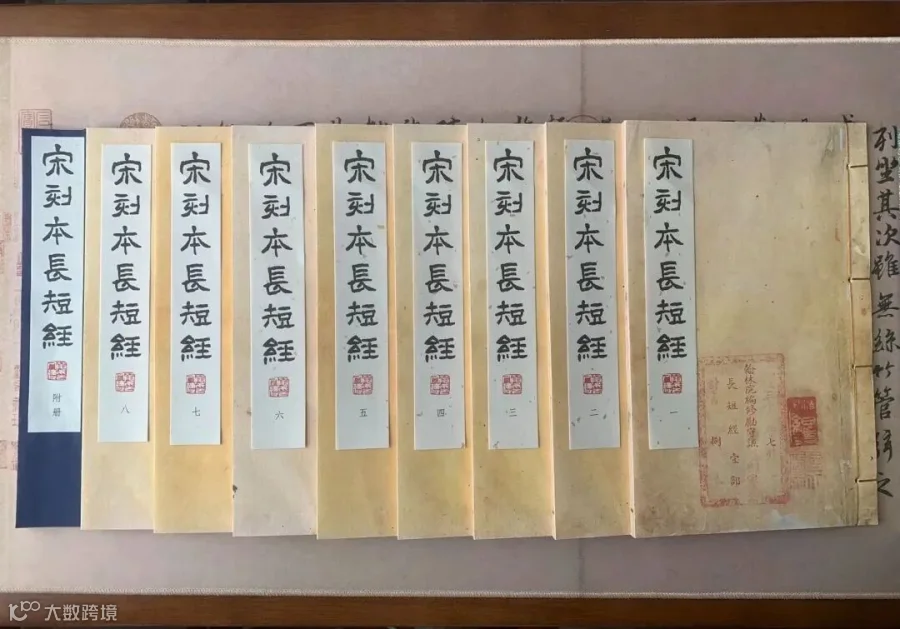 宋刻本長短經
一
宋刻本長短經
二
宋刻本長短經
三
宋刻本長短經
四
宋刻本長短經
五
宋刻本長短經
六
宋刻本長短經
七
宋刻本長短經
八
宋刻本長短經
附册
翰林院編修勵守謙
長短經壹部
七
捌
列坐其次雖無絲竹管弦之
大数跨境